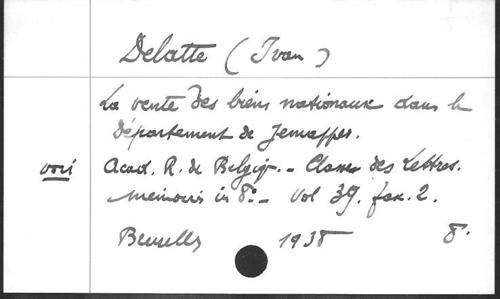 Delatte (Ivan)
La vente des biens nationaux dans le
Département de Jemappes.
voir Acad. R. de Belgiq. - Classe des Lettres.
Memoires in 8°- Vol 39. fasc. 2.
Bruxelles 1938 8°.